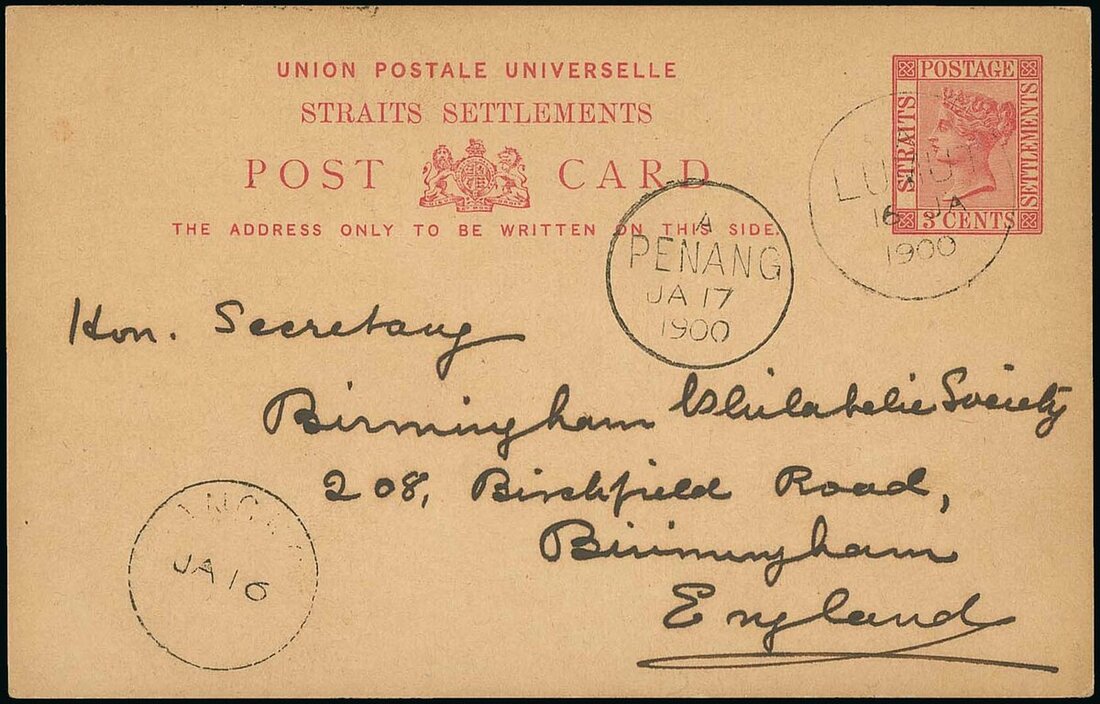 UNION POSTALE UNIVERSELLE
STRAITS SETTLEMENTS
POST CARD
THE ADDRESS ONLY TO BE WRITTEN ON THIS SIDE.
POSTAGE
STRAITS
SETTLEMENTS
3 CENTS
LUMUT
16 JA
1900
A
PENANG
JA 17
1900
Hon. Secretary
Birmingham Philatelic Society
208, Birchfield Road,
Birmingham
England
JA 16